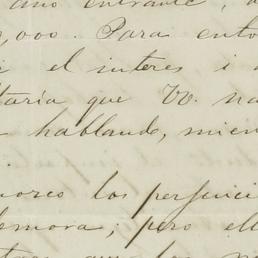 ano entrante, a
,000. Para ento
i el interes i a
taria que VV. na
hablando, mien
nores los perjuici
demora; pero ell